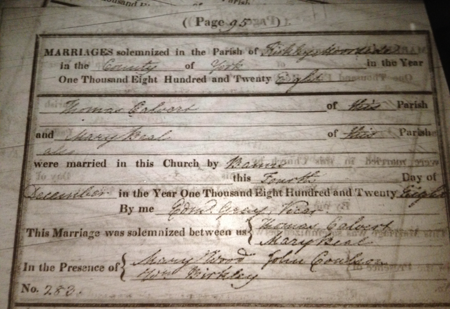 ( Page 95 )
MARRIAGES solemnized in the Parish of Kirkby Moorside
in the County of York in the Year
One Thousand Eight Hundred and Twenty Eight
Thomas Calvert of this Parish
and Mary Beal of this Parish
were married in this Church by Banns
this Fourth Day of
December in the Year One Thousand Eight Hundred and Twenty Eight
By me Edmd Gray Vicar
This Marriage was solemnized between us { Thomas Calvert
Mary Beal
In the Presence of { Mary Wood John Coulson
Birkley
No. 283.